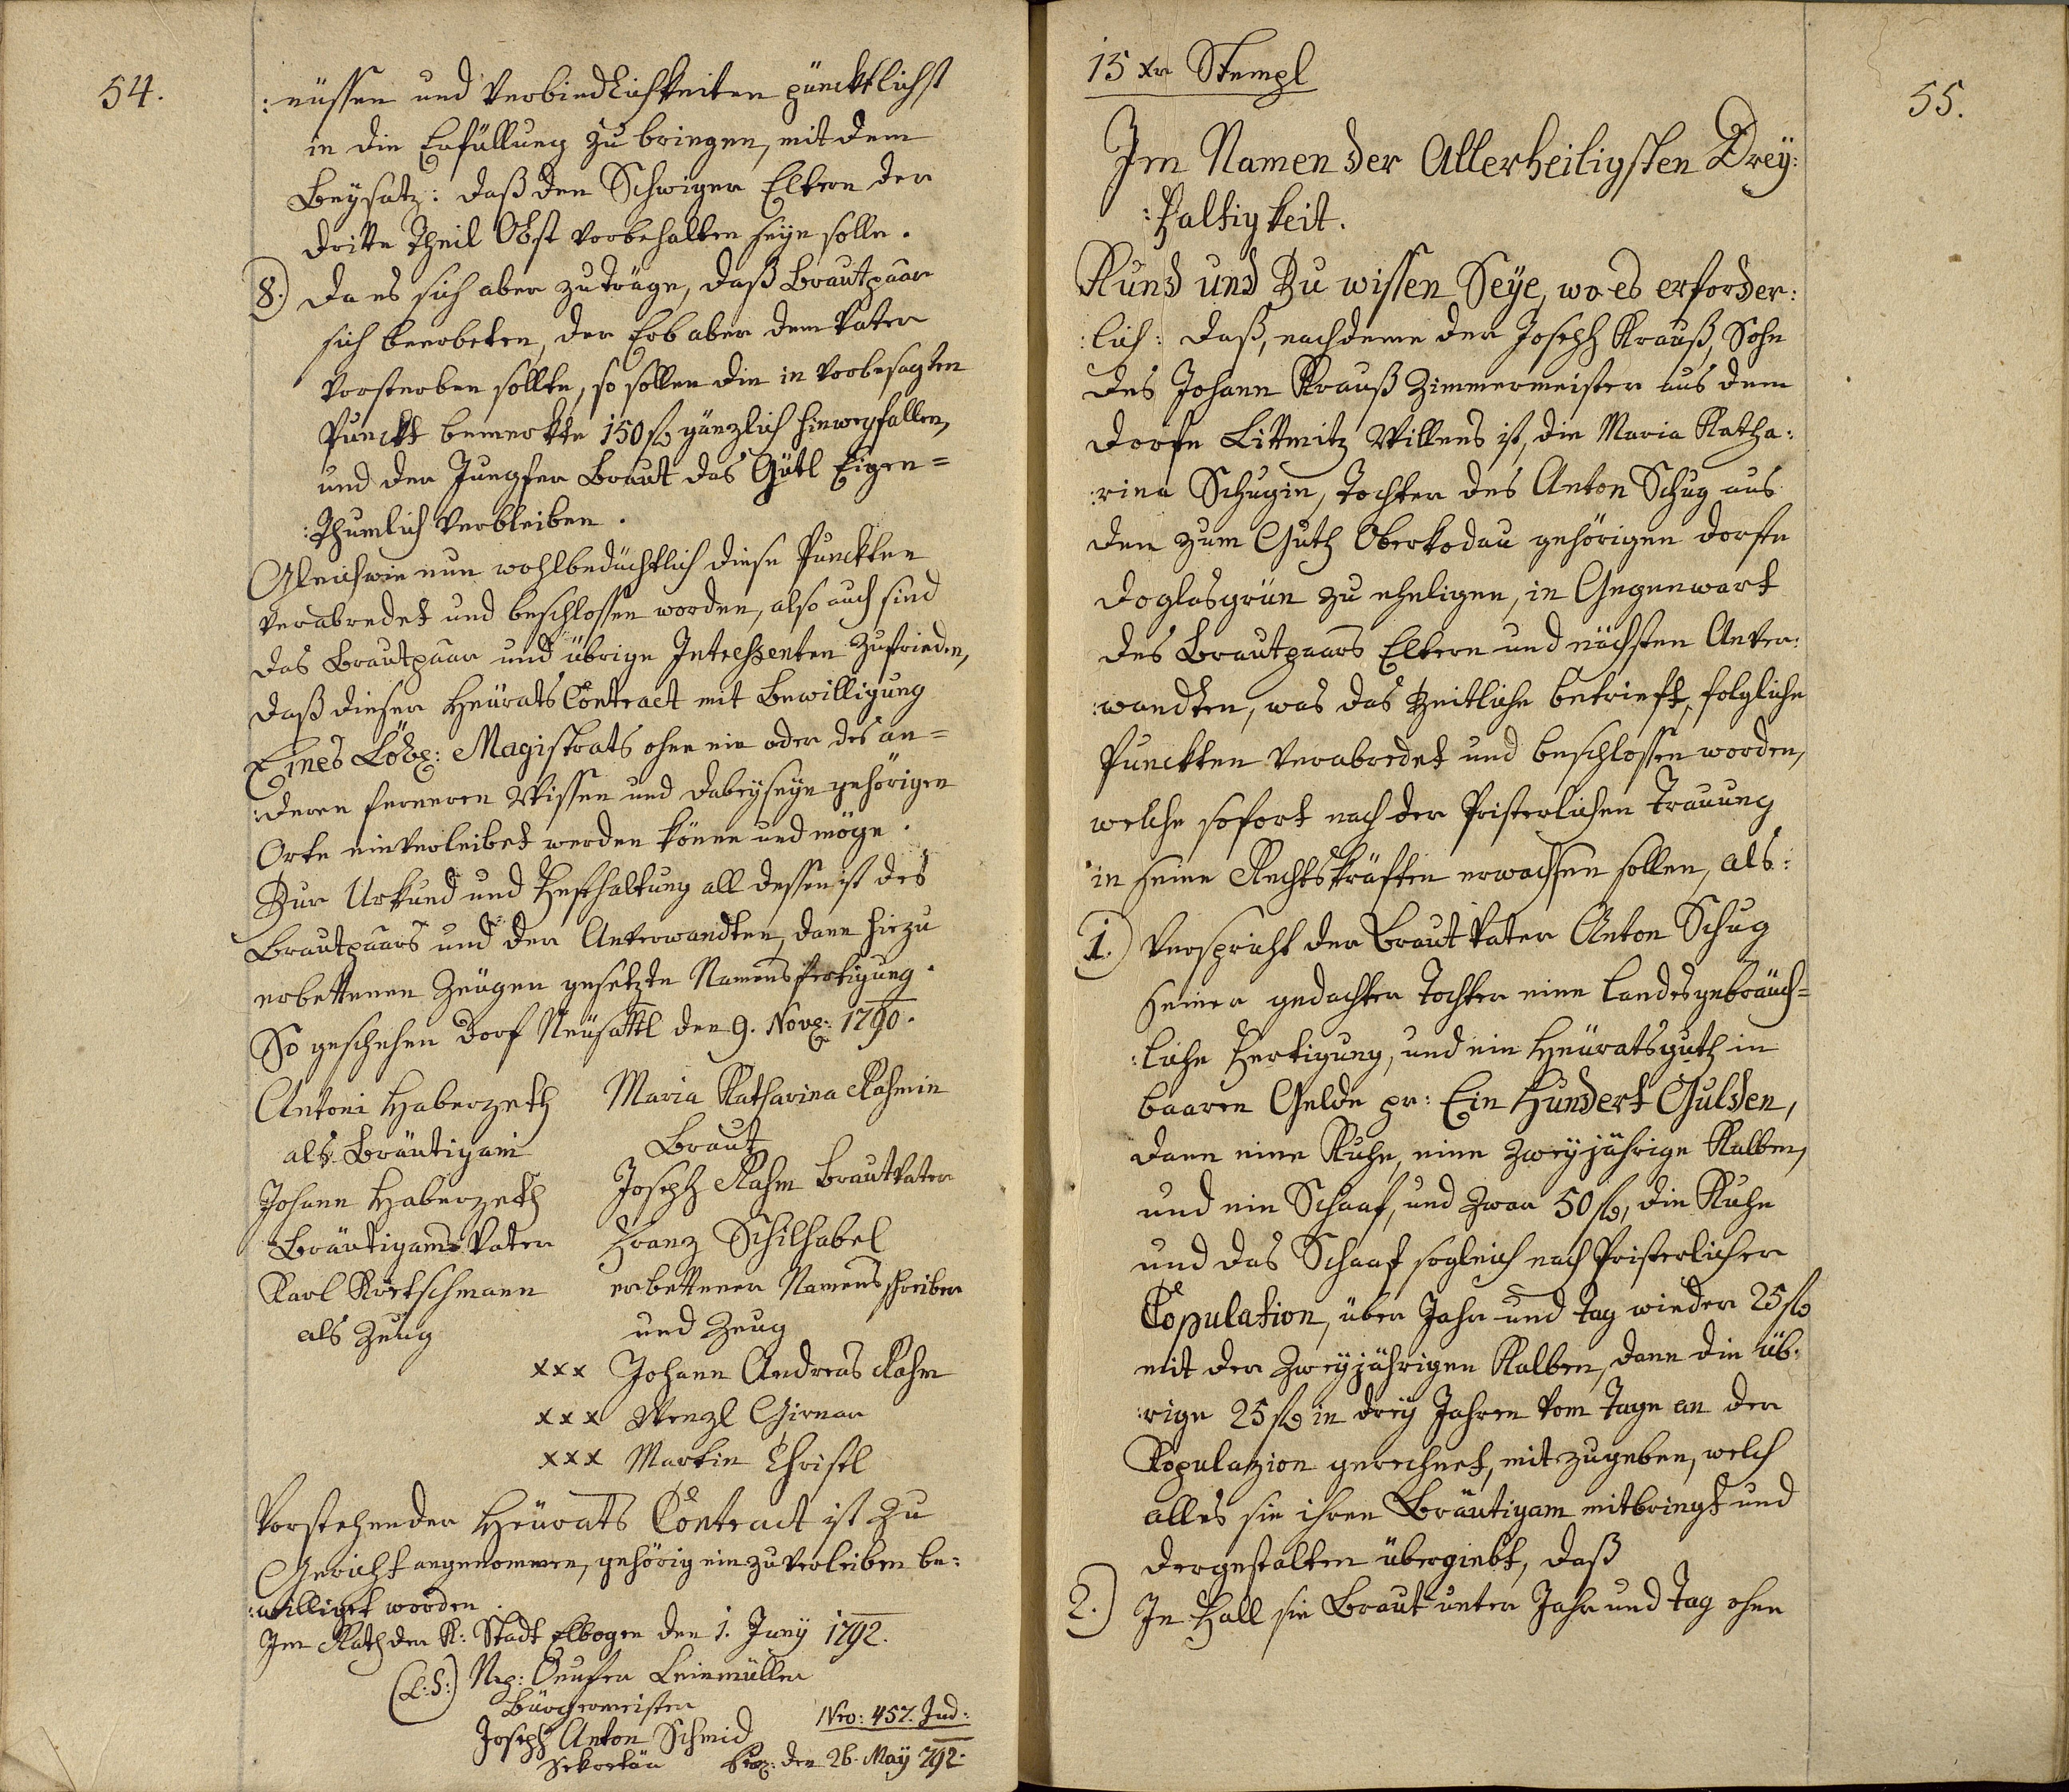 54.
:nüssen und Verbindlichkeiten püncktlichst
in die Erfüllung zu bringen, mit dem
Beysatz: daß den Schwiger Eltern der
dritte Theil Obst vorbehalten seyn solle.
8.) Da es sich aber zuträge, daß Brautpaar
sich beerbeten, der Erb aber dem Vater
vorsterben sollte, so sollen die in vorbesagten
Punckt bemerkte 150 f gänzlich hinwegfallen,
und der Jungfer Braut das Gütl Eigen=
:thumlich verbleiben.
Gleichwie nun wohlbedächtlich diese Punckten
verabredet und beschlossen worden, also auch sind
das Brautpaar und übrige Intressenten zufrieden,
daß dieser Heurats Contract mit Bewilligung
Eines Löbl: Magistrats ohne ein oder des an=
:deren ferneren Wissen und dabeyseyn gehörigen
Orte einverleibet werden könne und möge.
Zur Urkund und Festhaltung all dessen ist des
Brautpaars und der Anverwandten, dann hiezu
erbettenen Zeugen gesetzte Namensfertigung.
So geschehen Dorf Neüsattl den 9. Nov: 1790.
Antoni Haberzeth Maria Katharina Rahmin
als Bräutigam Braut
Johann Haberzeth Joseph Rahm Brautvater
Bräutigams Vater Franz Schilhabel
Karl Kretschmann erbettener Namensschreiber
als Zeug und Zeug
xxx Johann Andreas Rahm
xxx Wenzl Girner
xxx Martin Christl
Vorstehender Heurats Contract ist zu
Gericht angenommen, gehörig einzuverleiben be:
:williget worden.
Im Rath der K: Stadt Elbogen den 1. Juny 1792.
(L:S:) Nep: Leinmüller
Bürgermeister
Joseph Anton Schmid Nro: 457. Jud:
Sekretär den 26. May 792.
55.
15 xr Stempl
Im Namen der Allerheiligsten Drey:
:faltigkeit.
Kund und Zu wissen Seye, wo es erforder:
:lich: daß, nachdeme der Joseph Krauß, Sohn
des Johann Krauß Zimmermeister aus dem
Dorfe Littmitz Willens ist, die Maria Katha:
:rina Schugin, Tochter des Anton Schug aus
den zum Guth Oberkodau gehörigen Dorfe
Doglasgrün zu eheligen, in Gegenwart
des Brautpaars Eltern und nächsten Anver:
:wandten, was das Zeitliche betrieft, folgliche
Punckten verabredet und beschlossen worden,
welche sofort nach der Pristerlichen Trauung
in seine Rechtskräften erwachsen sollen, als:
1.) Verspricht der Braut Vater Anton Schug
seiner gedachten Tochter eine landesgebräuch=
:liche Fertigung, und ein Heuratsguth in
baaren Gelde pr: Ein Hundert Gulden,
dann eine Kuhe, eine Zweyjährige Kalben,
und ein Schaaf, und zwar 50 f, die Kuhe
und das Schaaf sogleich nach Pristerlicher
Copulation, über Jahr und Tag wieder 25 f
mit der zweyjährigen Kalben, dann die üb:
:rige 25 f in drey Jahren vom Tage an der
Kopulazion gerechnet, mitzugeben, welch
alles sie ihren Bräutigam mitbringt und
dergestalten übergiebt, daß
2.) In Fall sie Braut unter Jahr und Tag ohne